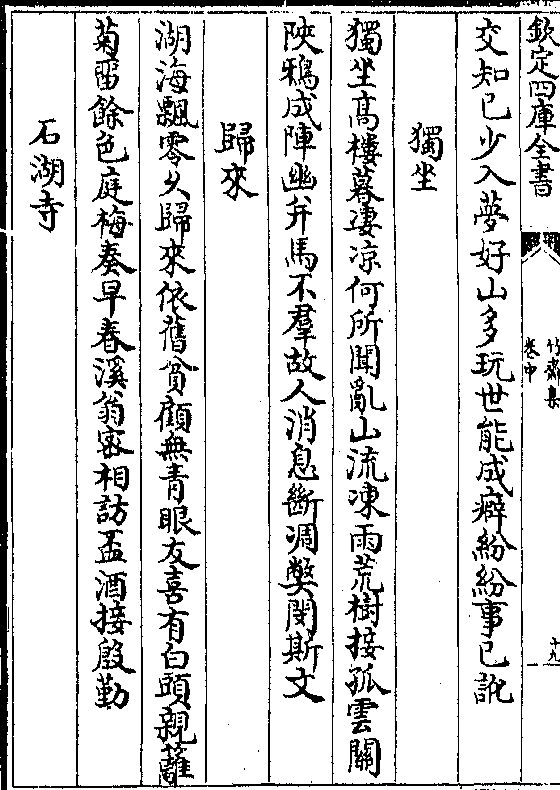 欽定四庫全書
竹齋集
卷中
十九
交知已少入夢好山多玩世能成癖紛紛事已訛
獨坐
獨坐高樓暮凄凉何所聞亂山流凍雨荒樹接孤雲關
陜鴉成陣幽并馬不羣故人消息斷凋獘閔斯文
歸來
湖海飄零久歸來依舊貧顧無青眼友喜有白頭親蘺
菊留餘色庭梅奏早春溪翁密相訪盃酒接殷勤
石湖寺